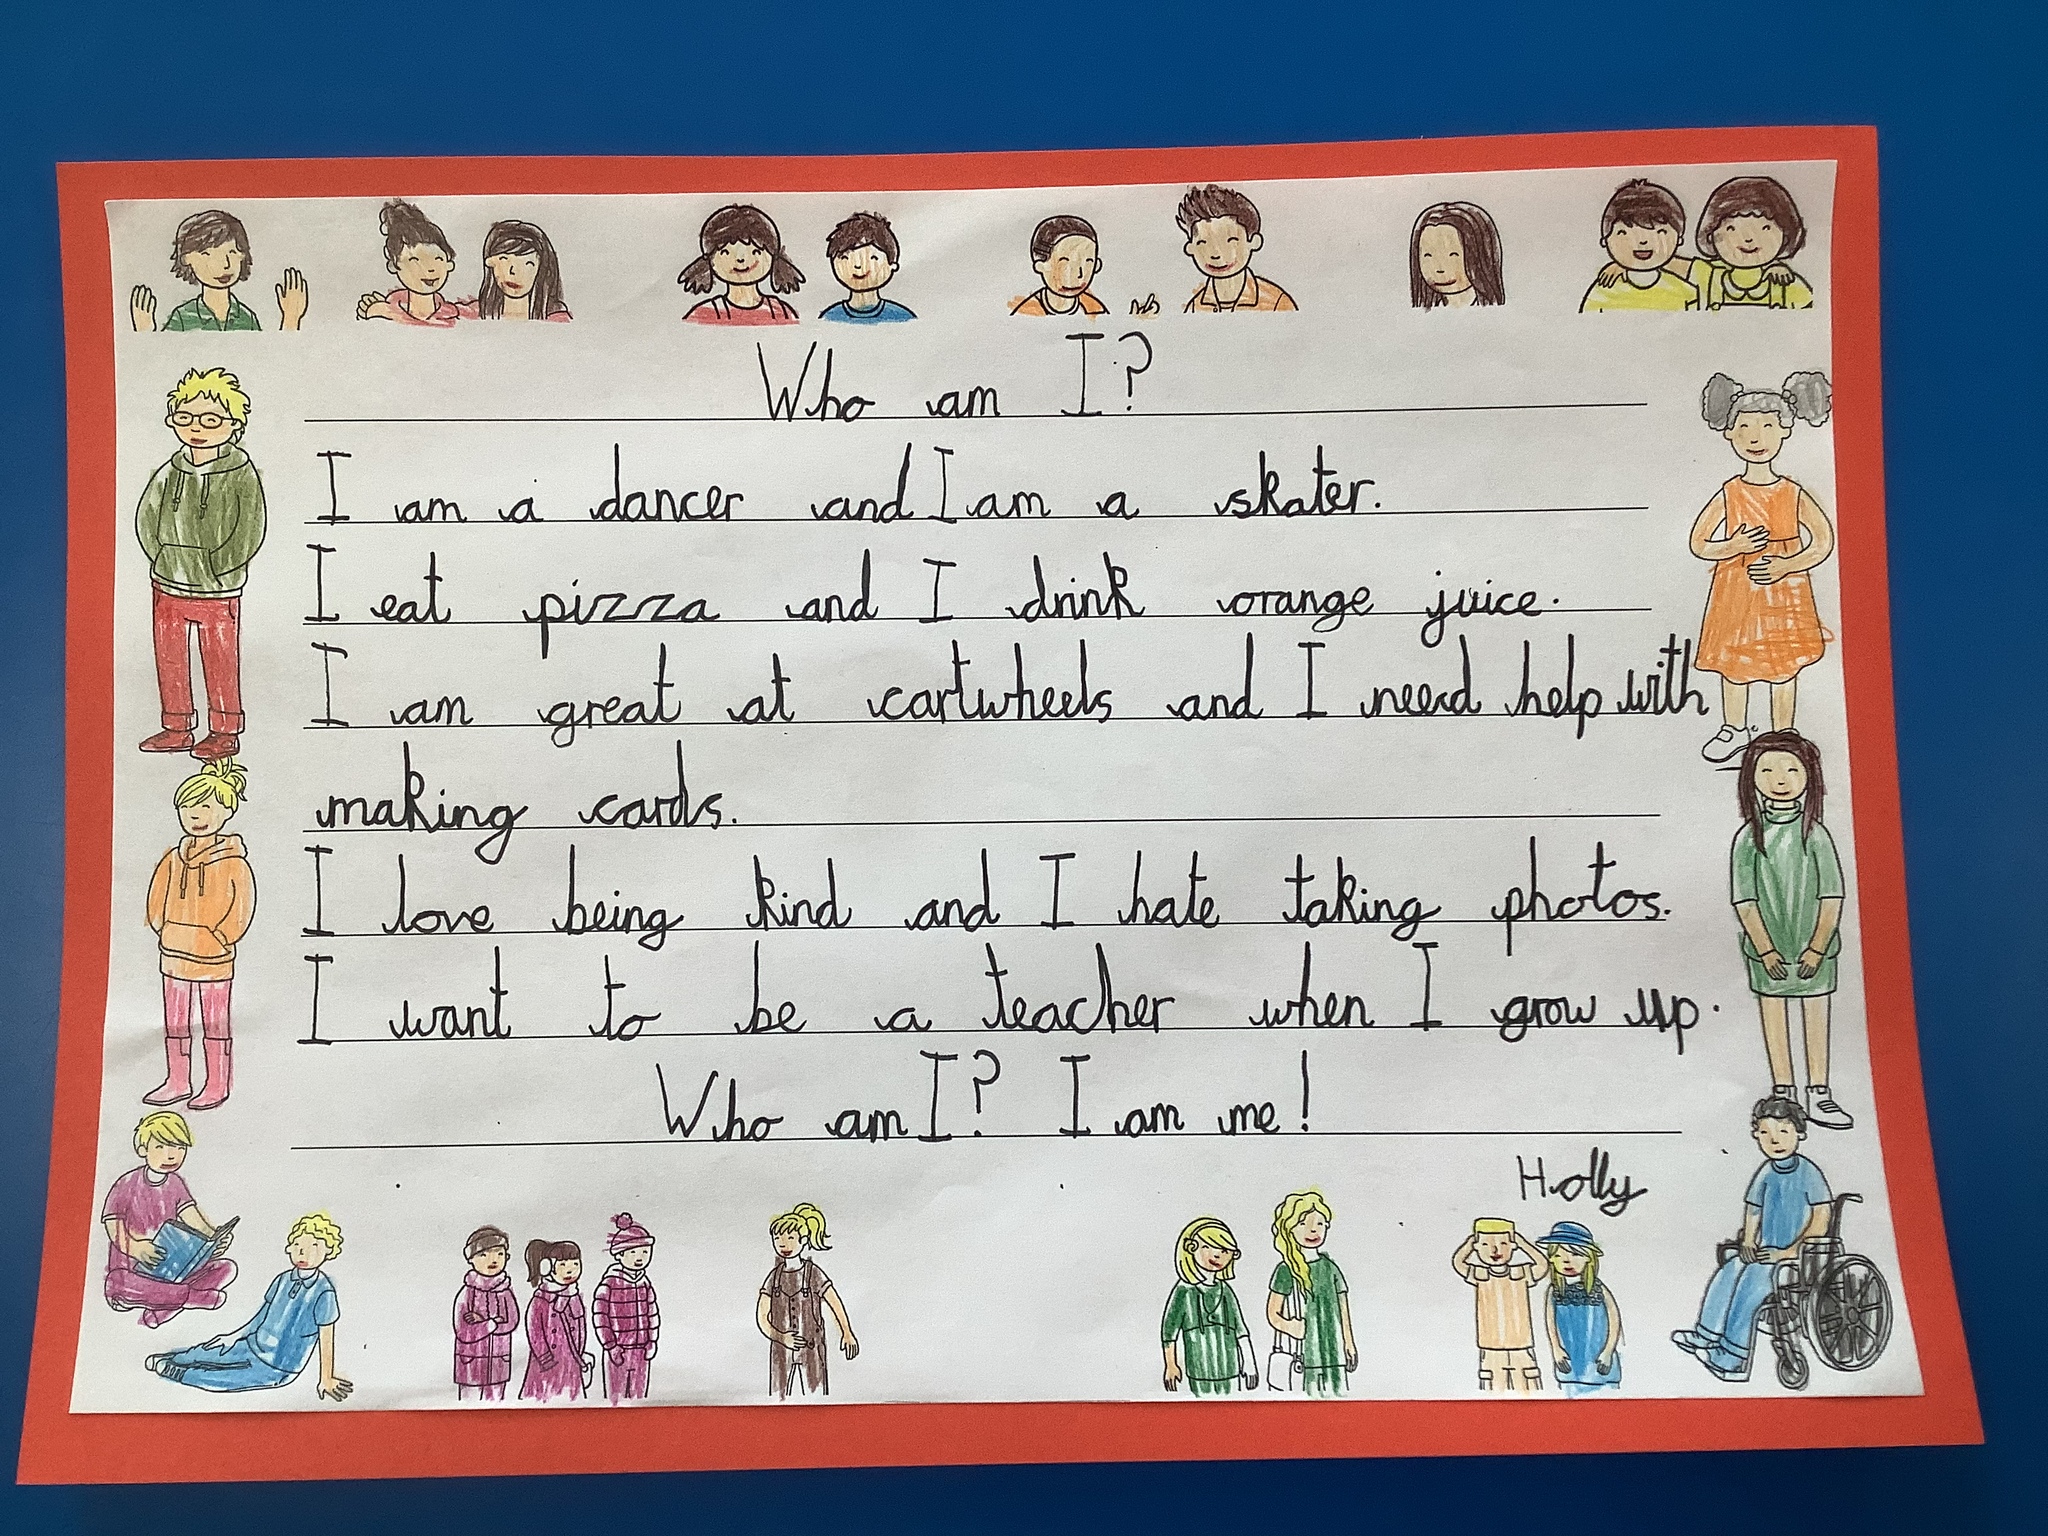 Who am I?
I am a dancer and I am a skater.
I eat pizza and I drink orange juice.
I am great at cartwheels and I need help with
making cards.
I love being kind and I hate taking photos.
I want to be a teacher when I grow up.
Who am I? I am me!
Holly